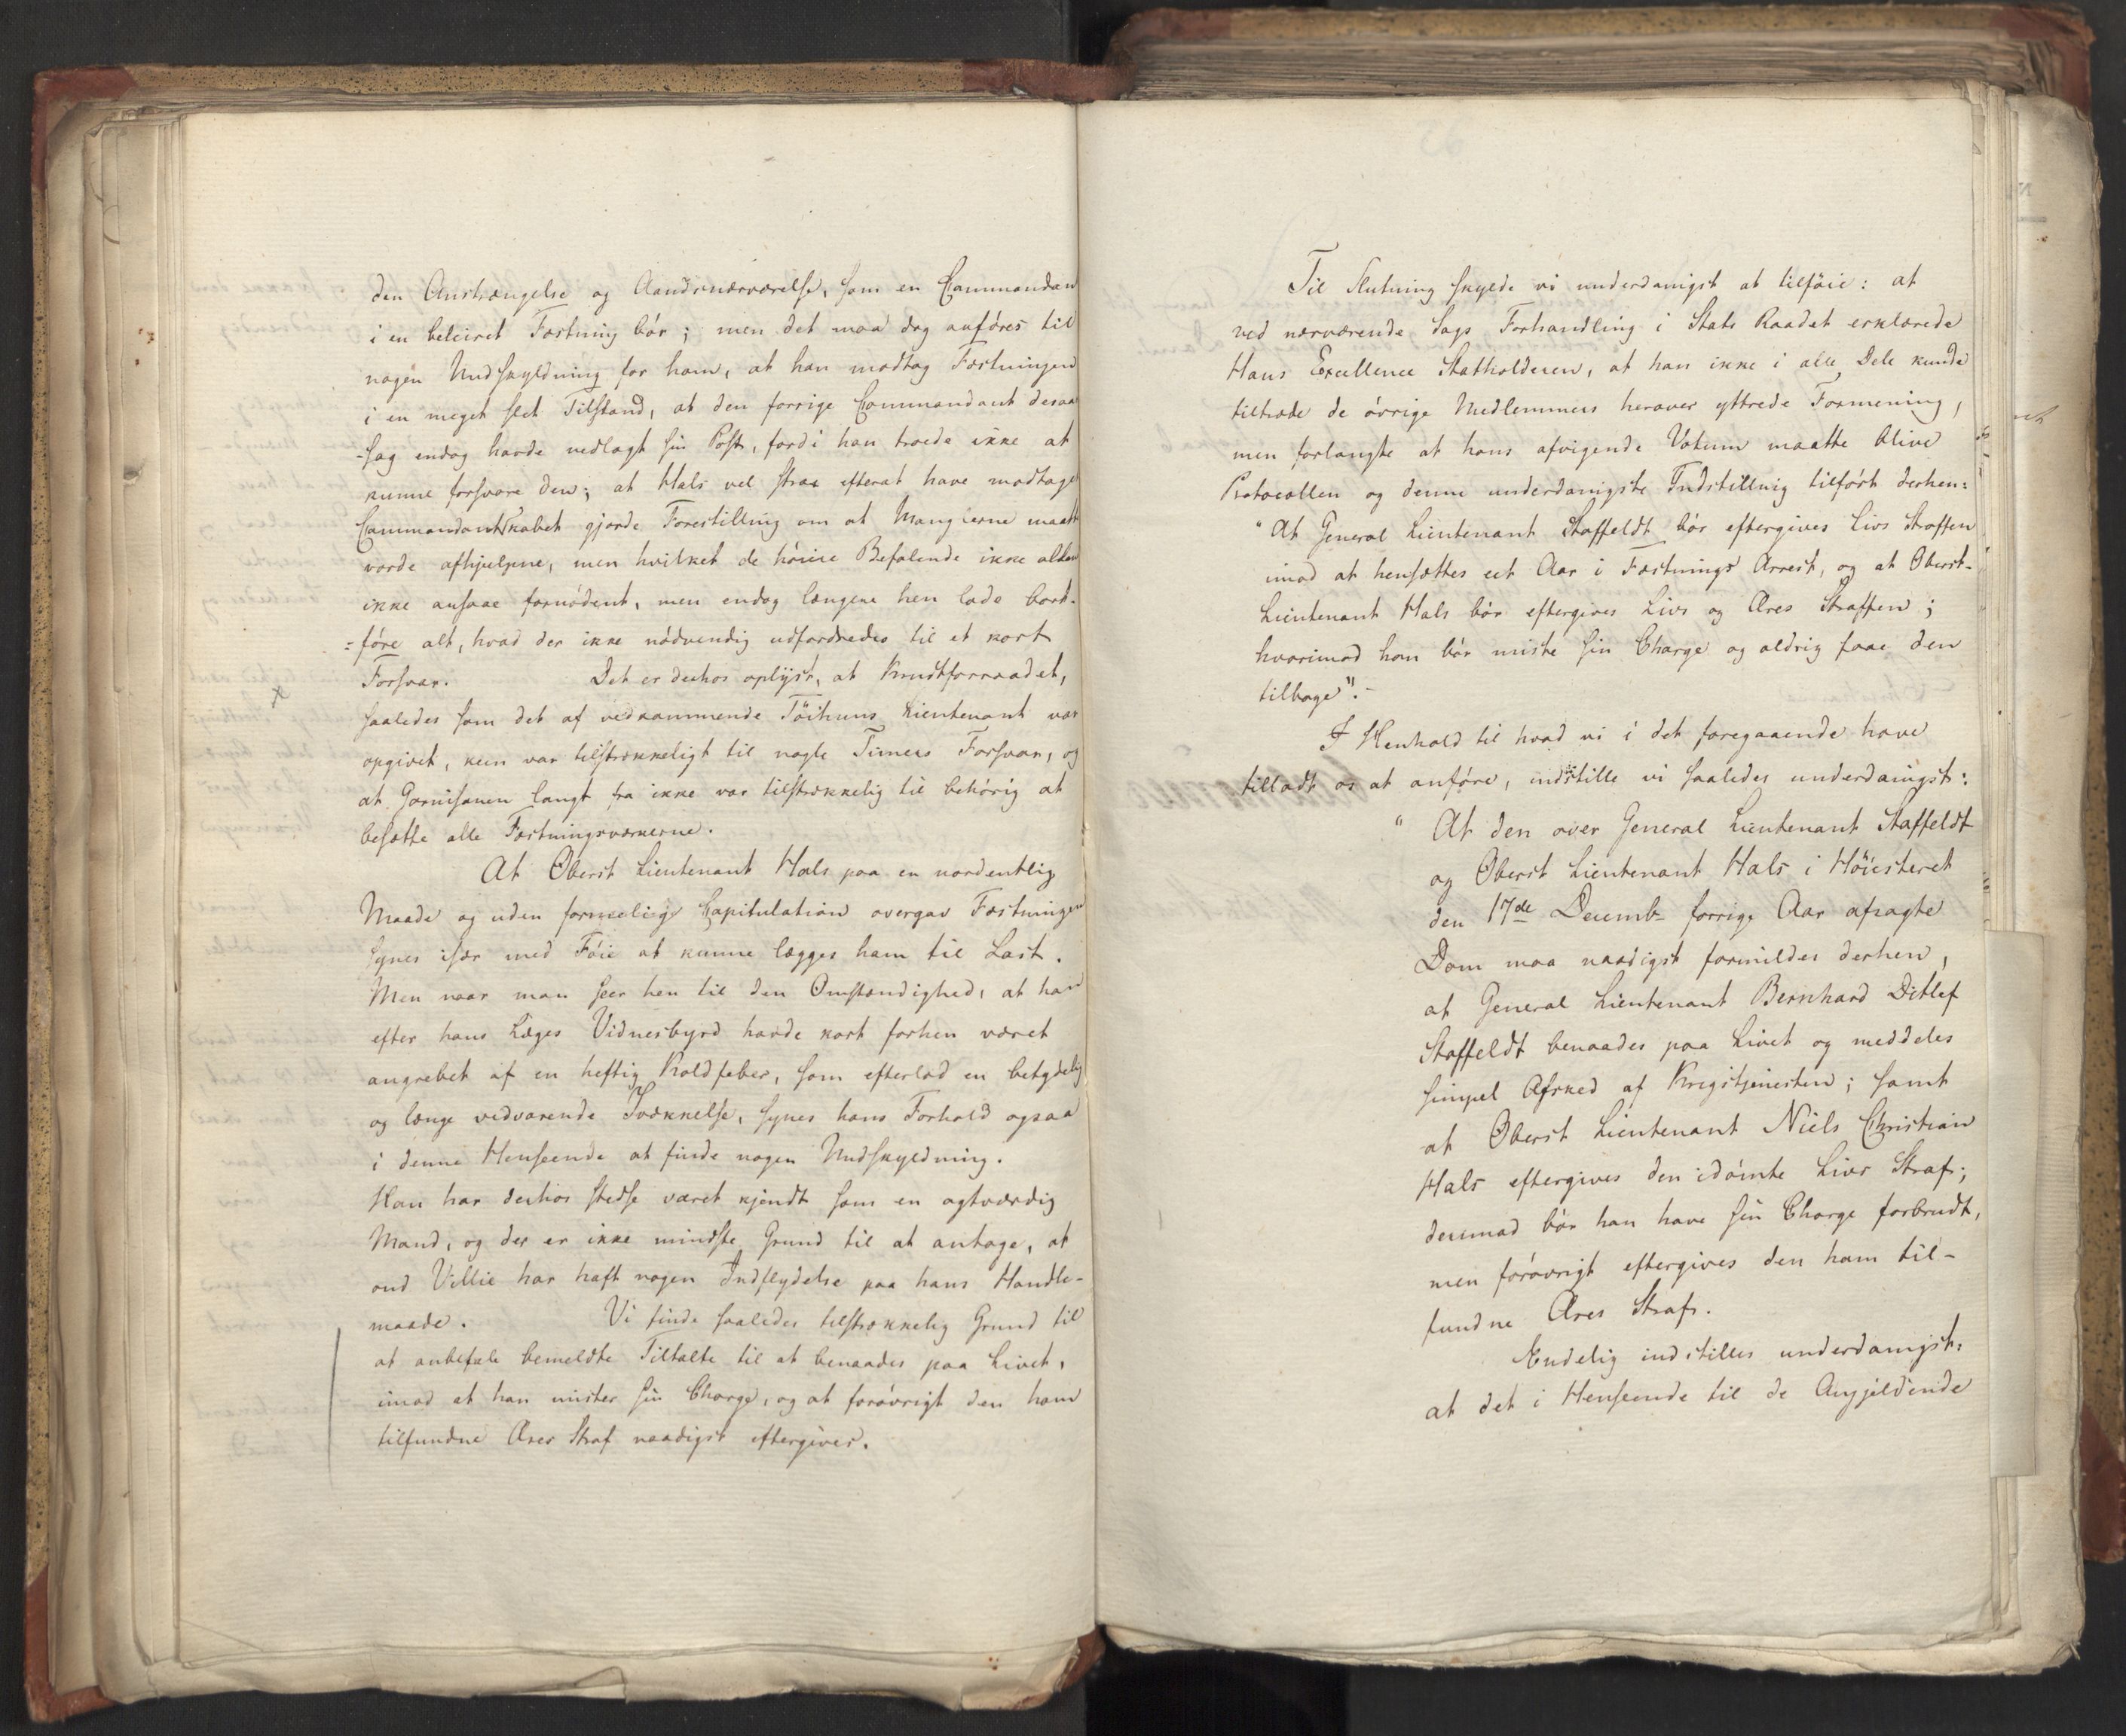 den Anstrængelse og Aandsnærværelse, som en Commandan
i en beleiret Fæstning bör; men det maa dog anföres til
nogen Undskyldning for ham, at han modtog Fæstningen
i en meget slet Tilstand, at den forrige Commandant desaar
-sag endog havde nedlagt sin Post, fordi han troede ikke at
kunne forsvare den; at Hals vel strax efterat have modtaget
Commandantskabet gjorde Forestilling om at Manglerne maatte
vorde afhjulpne, men hvilket de höiere Befalende ikke allen
ikke ansaae fornödent, men endog længere hen lode bort-
=före alt, hvad der ikke nödvendig udfordredes til et kort
Forsvar. Det er derhos oplyst, at Krudtforraadet,
saaledes som det af vedkommende Töihuus Lieutenant var
opgivet, kun var tilstrækkeligt til nogle Timers Forsvar, og
at Garnisonen langt fra ikke var tilstrækkelig til behörig at
besætte alle Fæstningsværkerne.
At Oberst Lieutenant Hals paa en uordentlig
Maade og uden formelig Capitulation overgav Fæstningen
synes især med Föie at kunne lægges ham til Last.
Men naar man seer hen til den Omstændighed, at han
efter hans Læges Vidnesbyrd havde kort forhen været
angrebet af en heftig Koldfeber, som efterlod en betydelig
og længe vedvarende Svækkelse, synes hans Forhold ogsaa
i denne Henseende at finde nogen Undskyldning.
Han har derhos stedse været kjendt som en agtværdig
Mand, og der er ikke mindste Grund til at antage, at
ond Villie har haft nogen Indflydelse paa hans Handle-
maade. Vi finde saaledes tilstrækkelig Grund til
at anbefale bemeldte Tiltalte til at benaades paa Livet,
imod at han mister sin Charge, og at forövrigt den ham
tilfundne Æres Straf naadigst eftergives.
Til Slutning skulde vi underdanigst at tilföie: at
ved nærværende Sags Forhandling i Stats Raadet erklærede
Hans Excellence Statholderen, at han ikke i alle Dele kunde
tiltræde de övrige Medlemmers herover yttrede Formening,
men forlangte at hans afvigende Votum maatte blive
Protocollen og denne underdanigste Indstilling tilfört derhen:
"At General Lieutenant Staffeldt bör eftergives Livs Straffen
imod at hensættes eet Aar i Fæstnings Arrest, og at Oberst-
Lieutenant Hals bör eftergives Livs og Æres Straffen;
hvorimod han bör miste sin Charge og aldrig faae den
tilbage".-
I Henhold til hvad vi i det foregaaende have
tilladt os at anföre, indstille vi saaledes underdanigst:
" At den over General Lieutenant Staffeldt
og Oberst Lieutenant Hals i Höiesteret
den 17de Decemb- forrige Aar afsagte
Dom maa naadigst formildes derhen,
at General Lieutenant Bernhard Ditlef
Staffeldt benaades paa Livet og meddeles
simpel Afsked af Krigstjenesten; samt
at Oberst Lieutenant Niels Christian
Hals eftergives den idömte Livs Straf;
derimod bör han have sin Charge forbrudt,
men forövrigt eftergives den ham til-
fundne Æres Straf.
Endelig indstilles underdanigst:
at det i Henseende til de Angjeldende